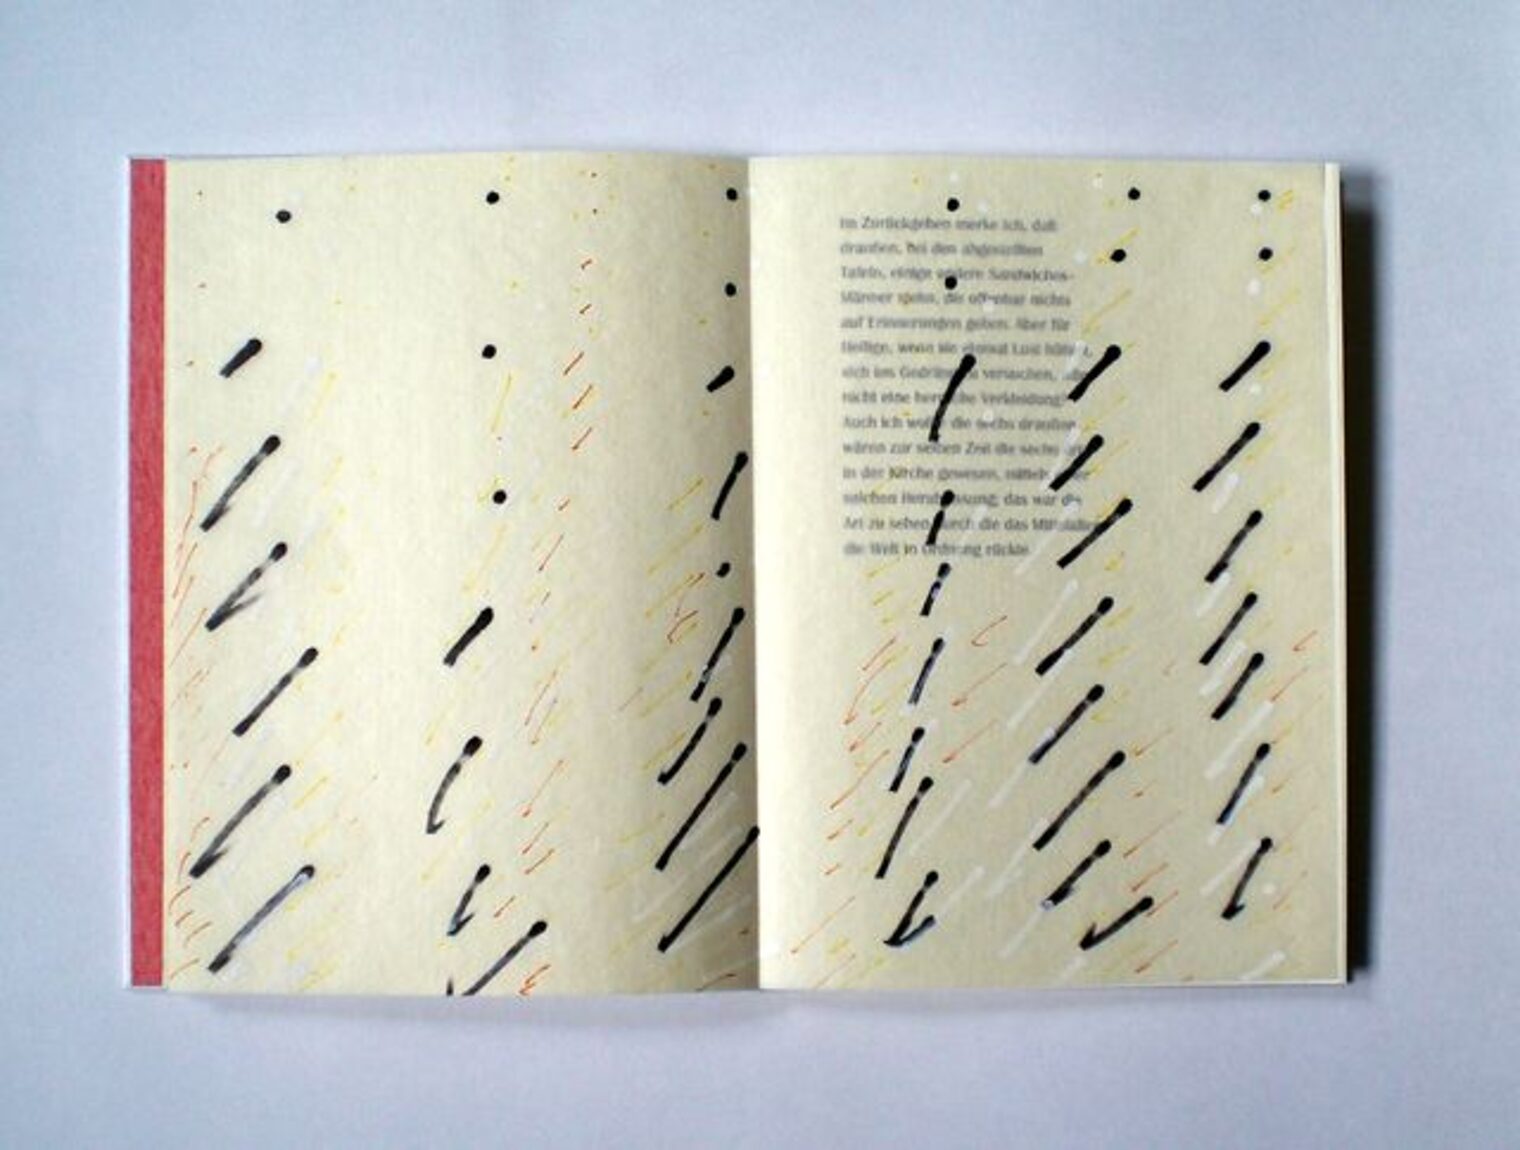 Im Zurückgehen merke ich, daß
draußen, bei den abgestellten
Tafeln, einige andere Sandwiches-
Männer stehn, die offenbar nichts
auf Erinnerungen geben. Aber für
Heilige, wenn sie einmal Lust hätten,
sich ins Gedränge zu versuchen,
nicht eine herrliche Verkleidung?
Auch ich wollte die sechs draußen
wären zur selben Zeit die sechs
in der Kirche gewesen, mittels
solchen Herablassung; das war die
Art zu sehen durch die das Mittelalter
die Welt in Ordnung rückte